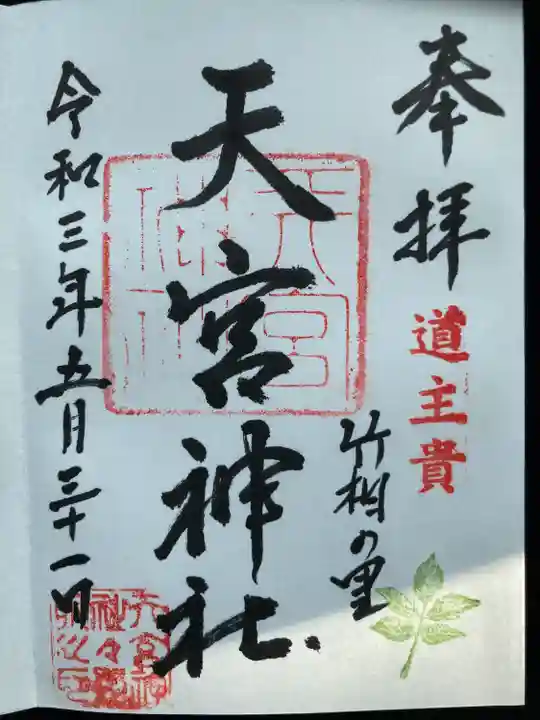 奉拝
道主貴
竹栂の里
天宮神社
令和三年五月三十一日
天宮神社